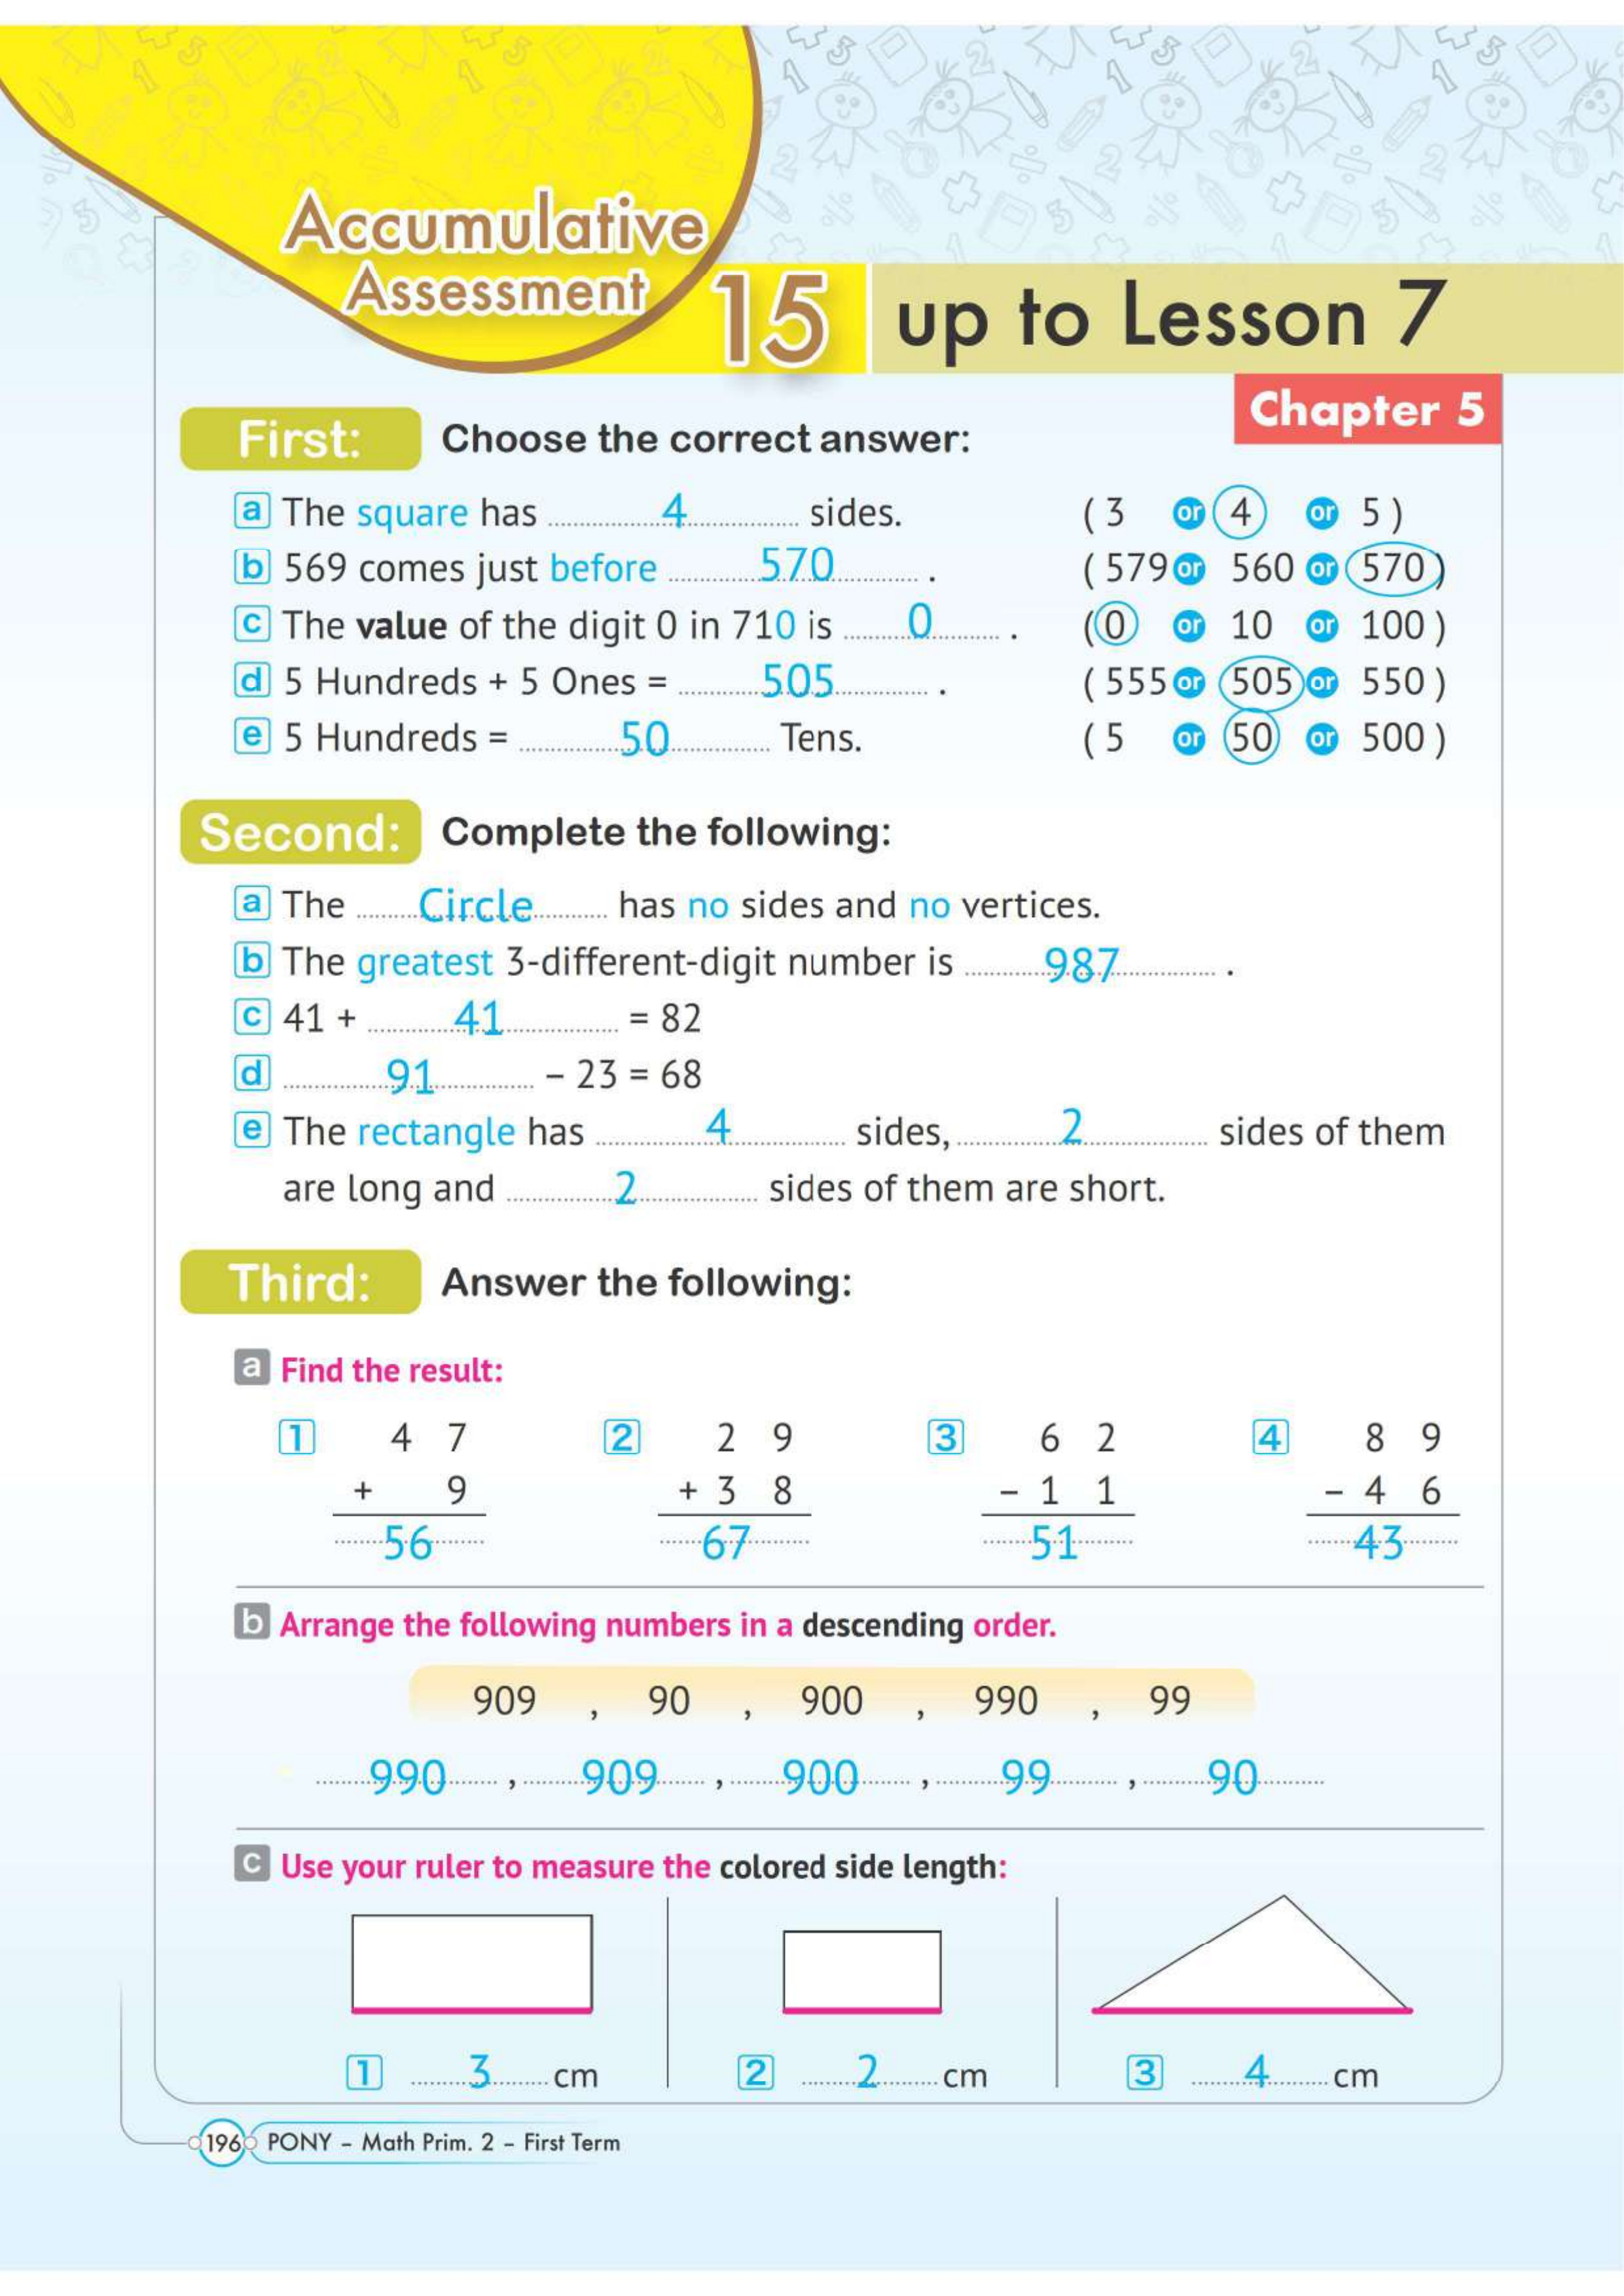 Accumulative
Assessment 15 up to Lesson 7
Chapter 5
First: Choose the correct answer:
a The square has ..... 4 ..... sides. ( 3 or 4 or 5 )
b 569 comes just before ..... 570 ..... . ( 579 or 560 or 570 )
c The value of the digit 0 in 710 is ..... 0 ..... . ( 0 or 10 or 100 )
d 5 Hundreds + 5 Ones = ..... 505 ..... . ( 555 or 505 or 550 )
e 5 Hundreds = ..... 50 ..... Tens. ( 5 or 50 or 500 )
Second: Complete the following:
a The ..... Circle ..... has no sides and no vertices.
b The greatest 3-different-digit number is ..... 987 ..... .
c 41 + ..... 41 ..... = 82
d ..... 91 ..... – 23 = 68
e The rectangle has ..... 4 ..... sides, ..... 2 ..... sides of them
are long and ..... 2 ..... sides of them are short.
Third: Answer the following:
a Find the result:
1 4 7 2 2 9 3 6 2 4 8 9
+ 9 + 3 8 – 1 1 – 4 6
56 67 51 43
b Arrange the following numbers in a descending order.
909 , 90 , 900 , 990 , 99
990 , 909 , 900 , 99 , 90
c Use your ruler to measure the colored side length:
1 ..... 3 ..... cm 2 ..... 2 ..... cm 3 ..... 4 ..... cm
196 PONY – Math Prim. 2 – First Term